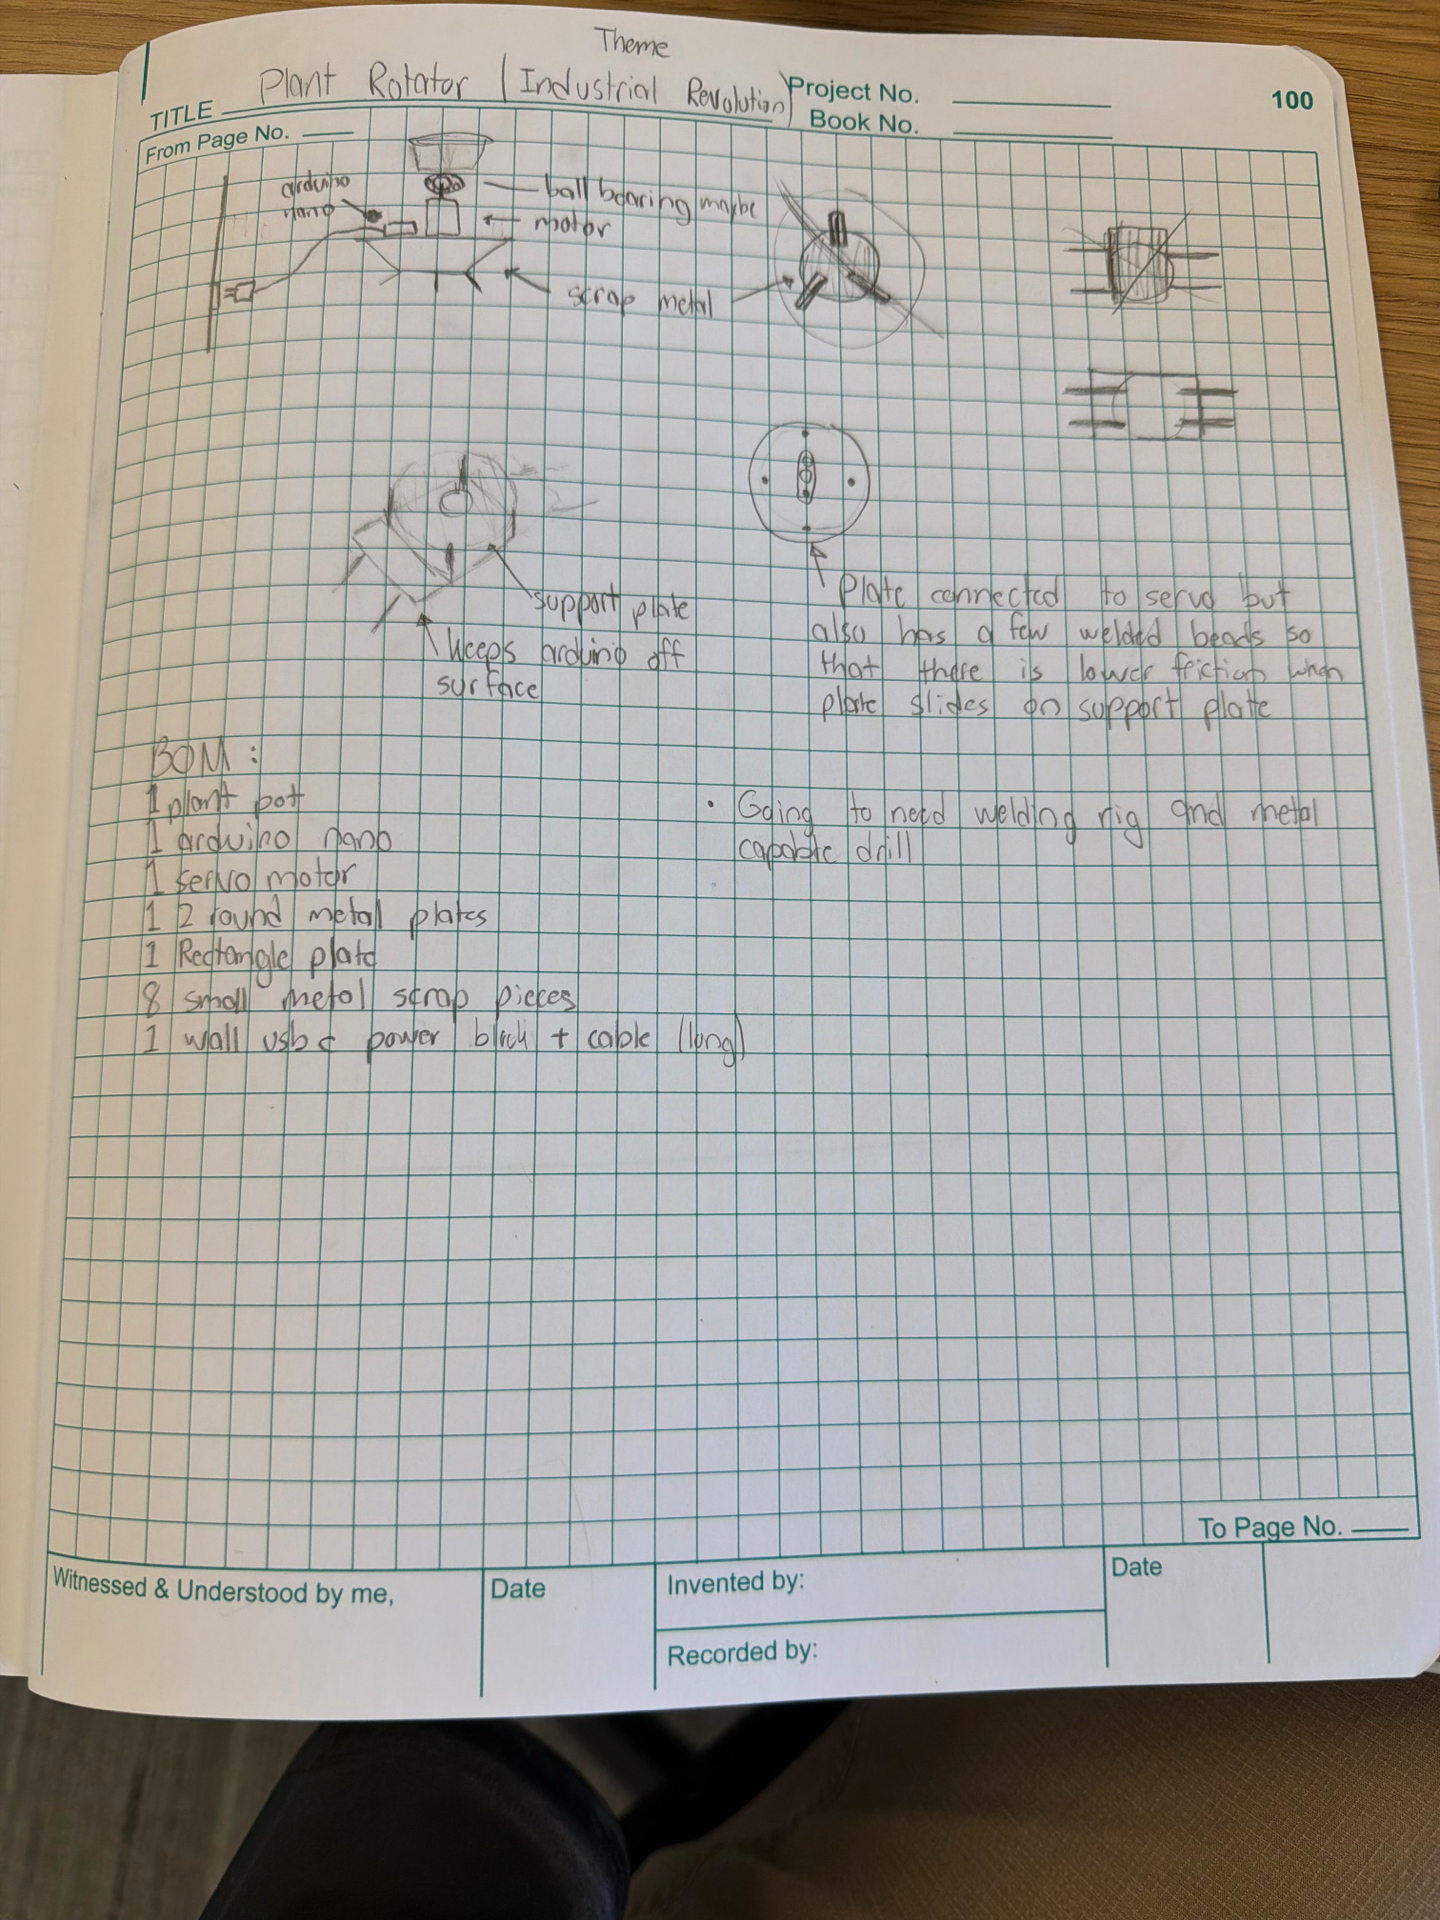 Theme
TITLE Plant Rotator (Industrial Revolution)
Project No.
100
Book No.
From Page No.
arduino
nano
ball bearing maybe
motor
scrap metal
support plate
keeps arduino off
surface
Plate connected to servo but
also has a few welded beads so
that there is lower friction when
plate slides on support plate
BOM:
1 plant pot
1 arduino nano
1 servo motor
1 2 round metal plates
1 Rectangle plate
8 small metal scrap pieces
1 wall usb c power block + cable (long)
• Going to need welding rig and metal
capable drill
To Page No.
Witnessed & Understood by me,
Date
Invented by:
Date
Recorded by: